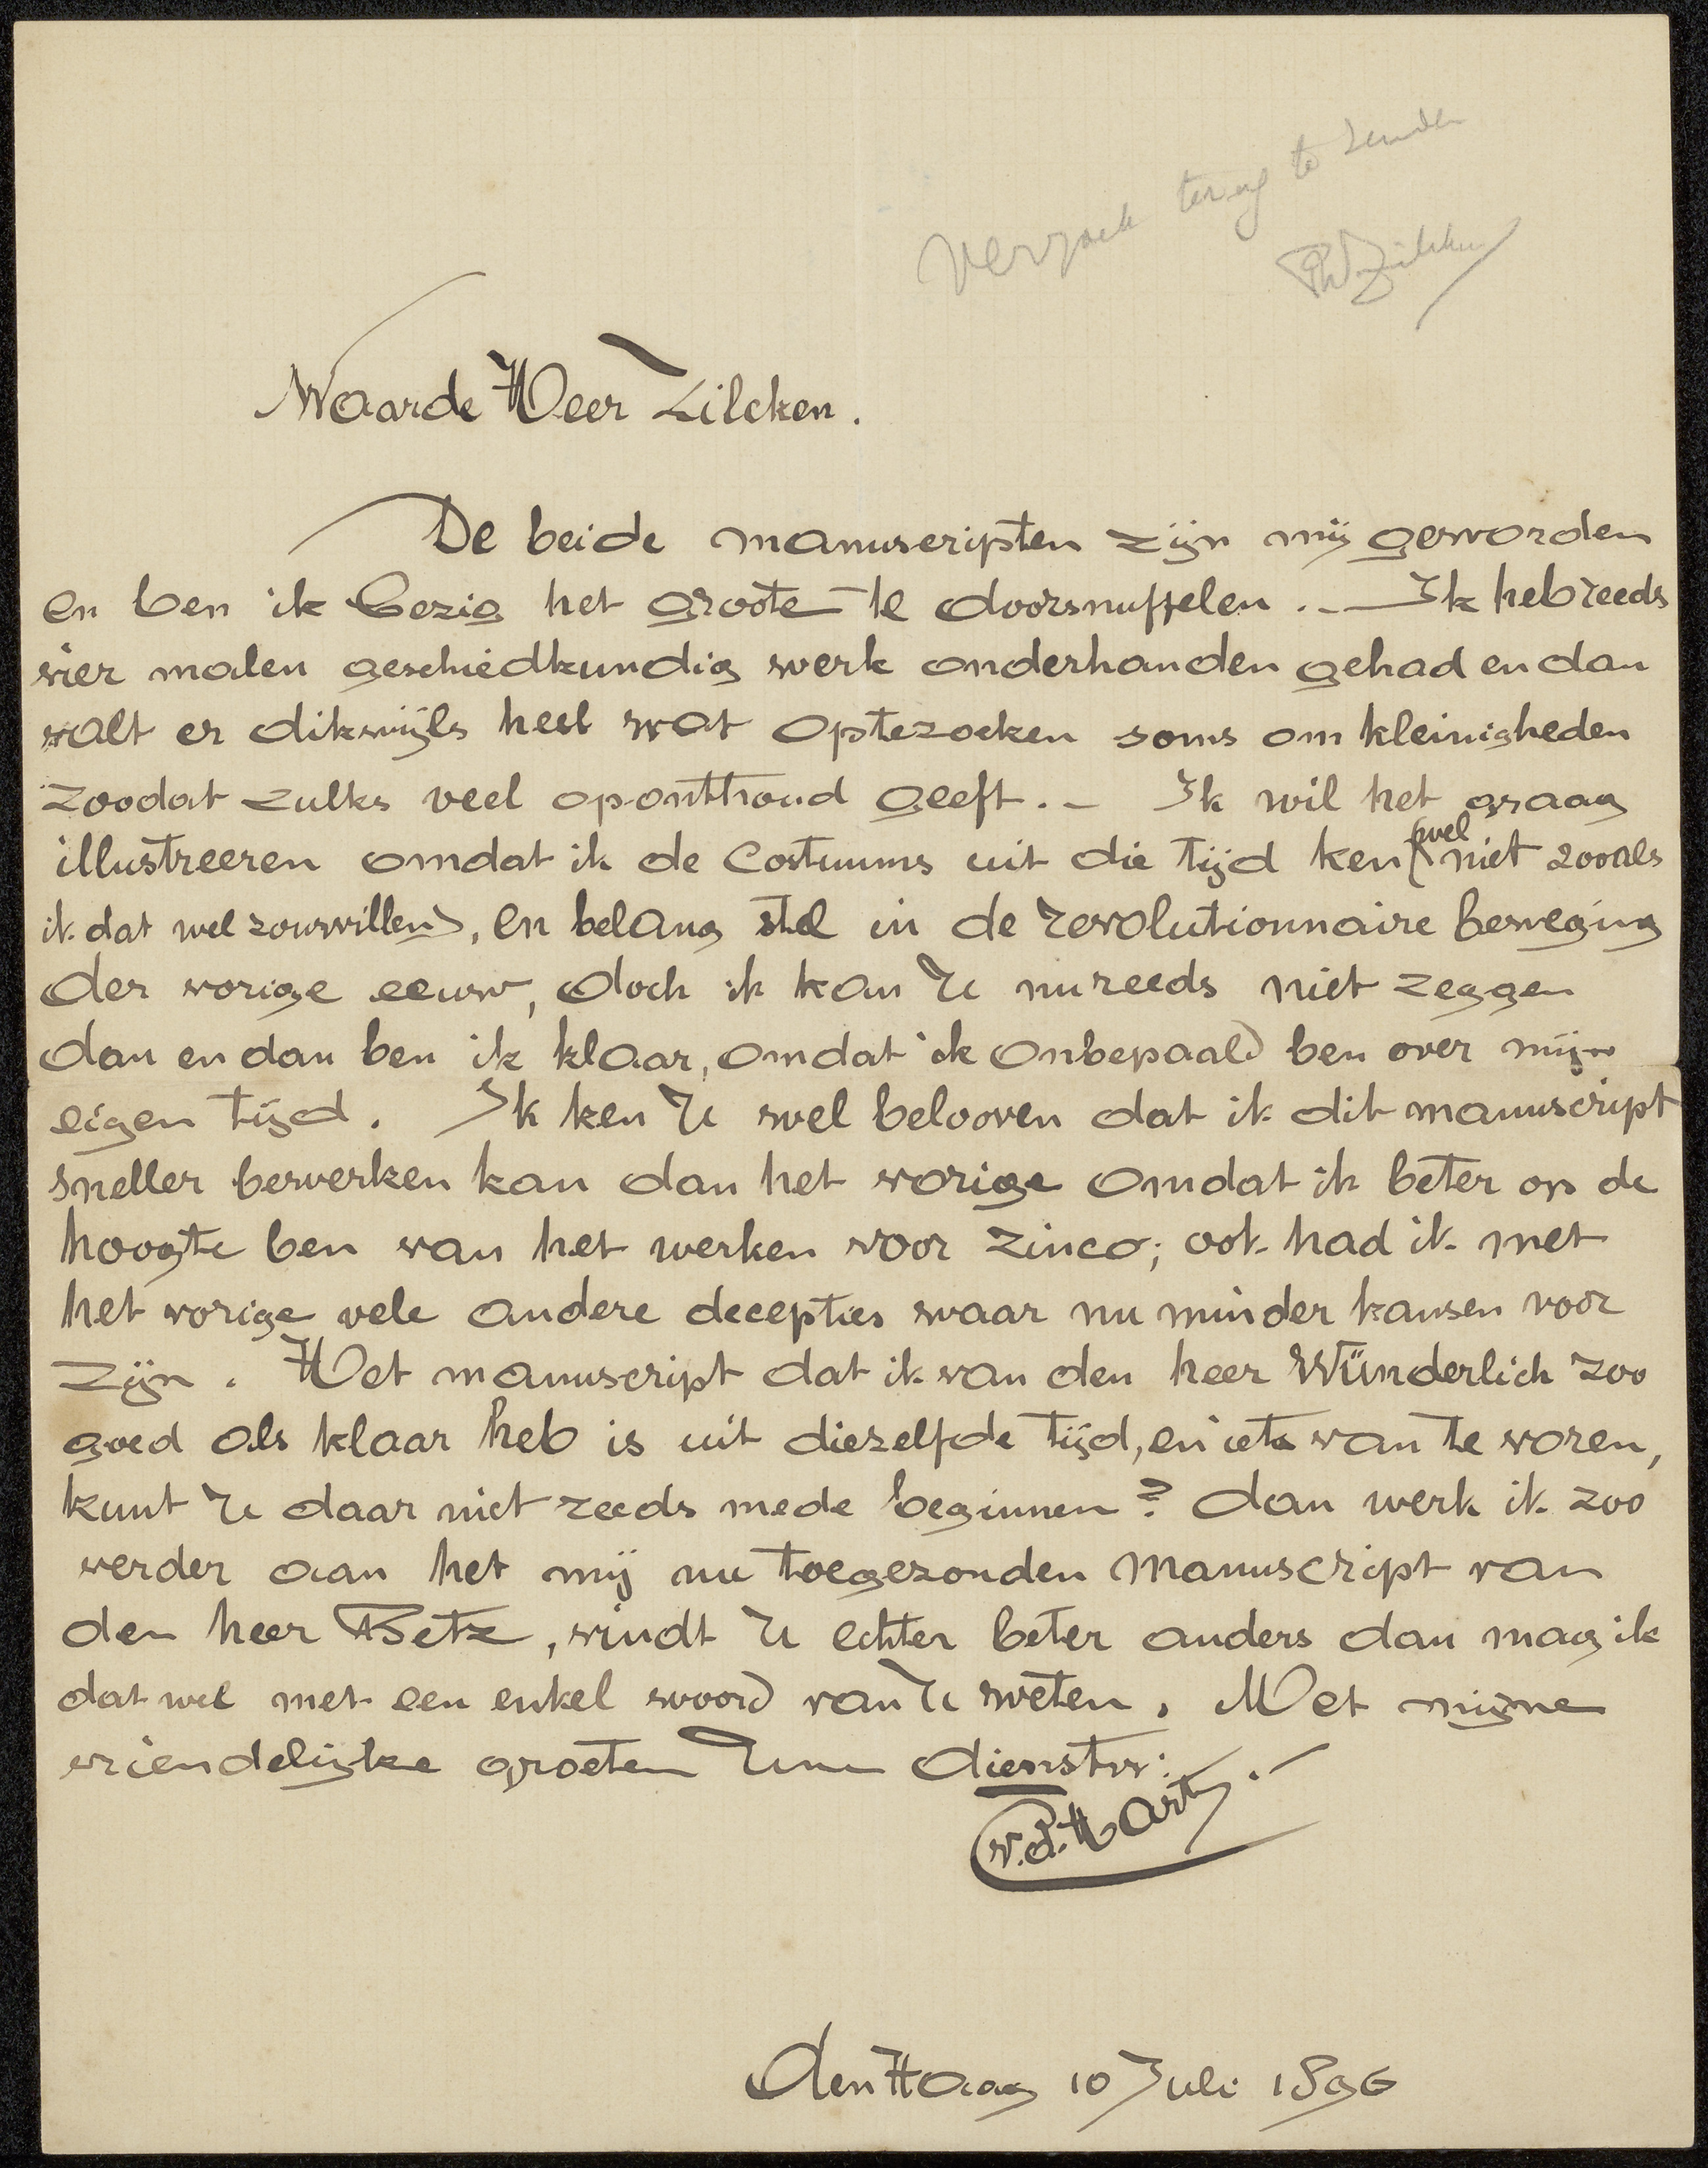 Verzoek terug te zenden
PhZilcken
Waarde Heer Zilcken.
De beide manuscripten zijn mij geworden
en ben ik bezig het groote te doorsnuffelen. — Ik heb reeds
vier malen geschiedkundig werk onderhanden gehad en dan
valt er dikwijls heel wat optezoeken soms om kleinigheden
zoodat zulks veel oponthoud geeft. — Ik wil het graag
illustreeren omdat ik de Costuums uit die tijd ken (wel niet zooals
ik dat wel zou willen), en belang stel in de revolutionnaire beweging
der vorige eeuw, doch ik kan U nu reeds niet zeggen
dan en dan ben ik klaar, omdat ik onbepaald ben over mijn
eigen tijd. Ik ken U wel belooven dat ik dit manuscript
sneller bewerken kan dan het vorige omdat ik beter op de
hoogte ben van het werken voor zinco; ook had ik met
het vorige vele andere decepties waar nu minder kansen voor
zijn. Het manuscript dat ik van den heer Wünderlich zoo
goed als klaar heb is uit diezelfde tijd, en iets van te voren,
kunt U daar niet reeds mede beginnen? dan werk ik zoo
verder aan het mij nu toegezonden manuscript van
den heer Betz, vindt U echter beter anders dan mag ik
dat wel met een enkel woord van U weten. Met mijne
vriendelijke groeten Uw dienstw:
v.d. Hart
den Haag 10 Juli 1896